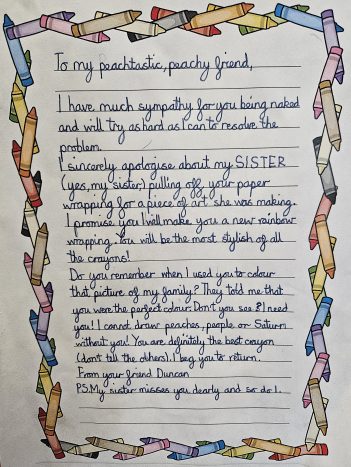 To my peachtastic, peachy friend,
I have much sympathy for you being naked
and will try as hard as I can to resolve the
problem.
I sincerely apologise about my SISTER
(yes, my sister) pulling off your paper
wrapping for a piece of art she was making.
I promise you I will make you a new rainbow
wrapping. You will be the most stylish of all
the crayons!
Do you remember when I used you to colour
that picture of my family? They told me that
you were the perfect colour. Don't you see? I need
you! I cannot draw peaches, people or Saturn
without you! You are definitely the best crayon
(don't tell the others). I beg you to return.
From your friend Duncan
P.S. My sister misses you dearly and so do I.